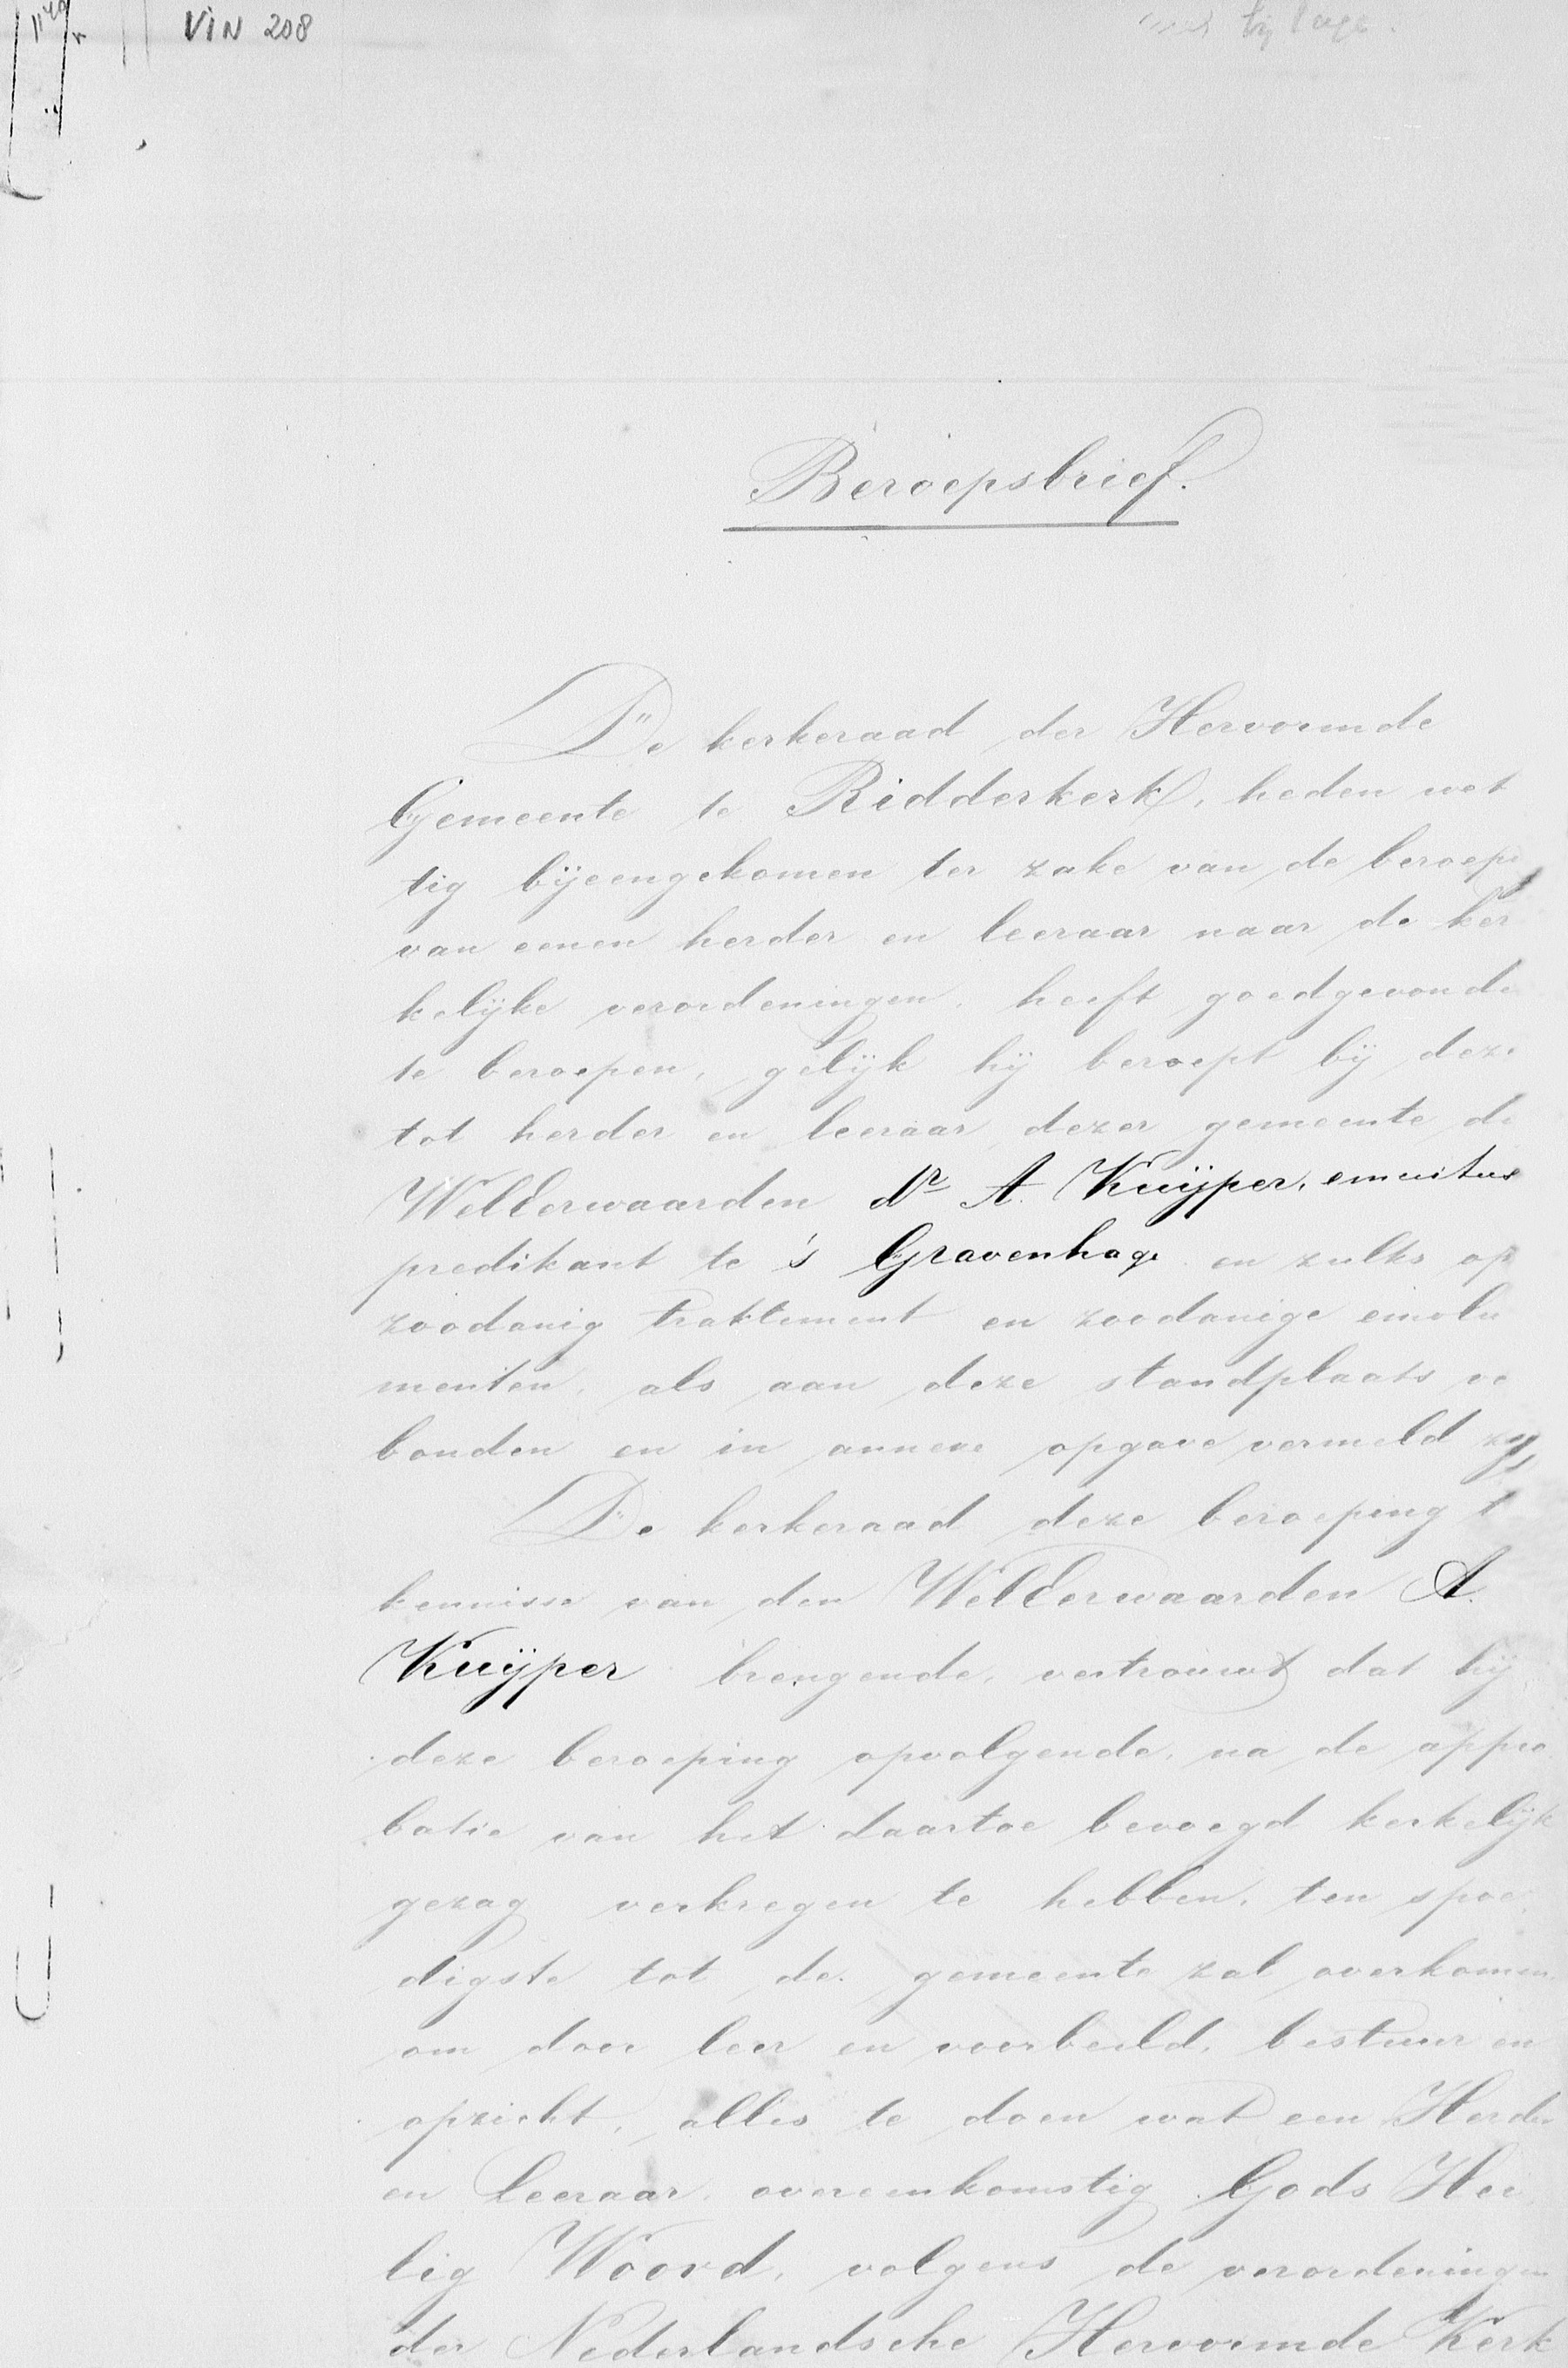 VIN 208
Beroepsbrief.
De kerkeraad der Hervormde
Gemeente te Ridderkerk, heden wet
tig bijeengekomen ter zake van de beroep
van eenen herder en leeraar naar de ker
kelijke verordeningen, heeft goedgevonde
te beroepen, gelijk hij beroept bij deze
tot herder en leeraar dezer gemeente de
WelEerwaarden Dr A. Kuijper, emeritus
predikant te 's Gravenhage en zulks op
zoodanig traktement en zoodanige emolu
menten, als aan deze standplaats ve
bonden en in annexe opgave vermeld zijn
De kerkeraad deze beroeping t
kennisse van den WelEerwaarden A.
Kuijper brengende, vertrouwt dat hij
deze beroeping opvolgende, na de appro
batie van het daartoe bevoegd kerkelijk
gezag verkregen te hebben, ten spoe
digste tot de gemeente zal overkomen
om door leer en voorbeeld, bestuur en
opzicht, alles te doen wat een Herder
en Leeraar, overeenkomstig Gods Hei
lig Woord, volgens de verordeningen
der Nederlandsche Hervormde Kerk